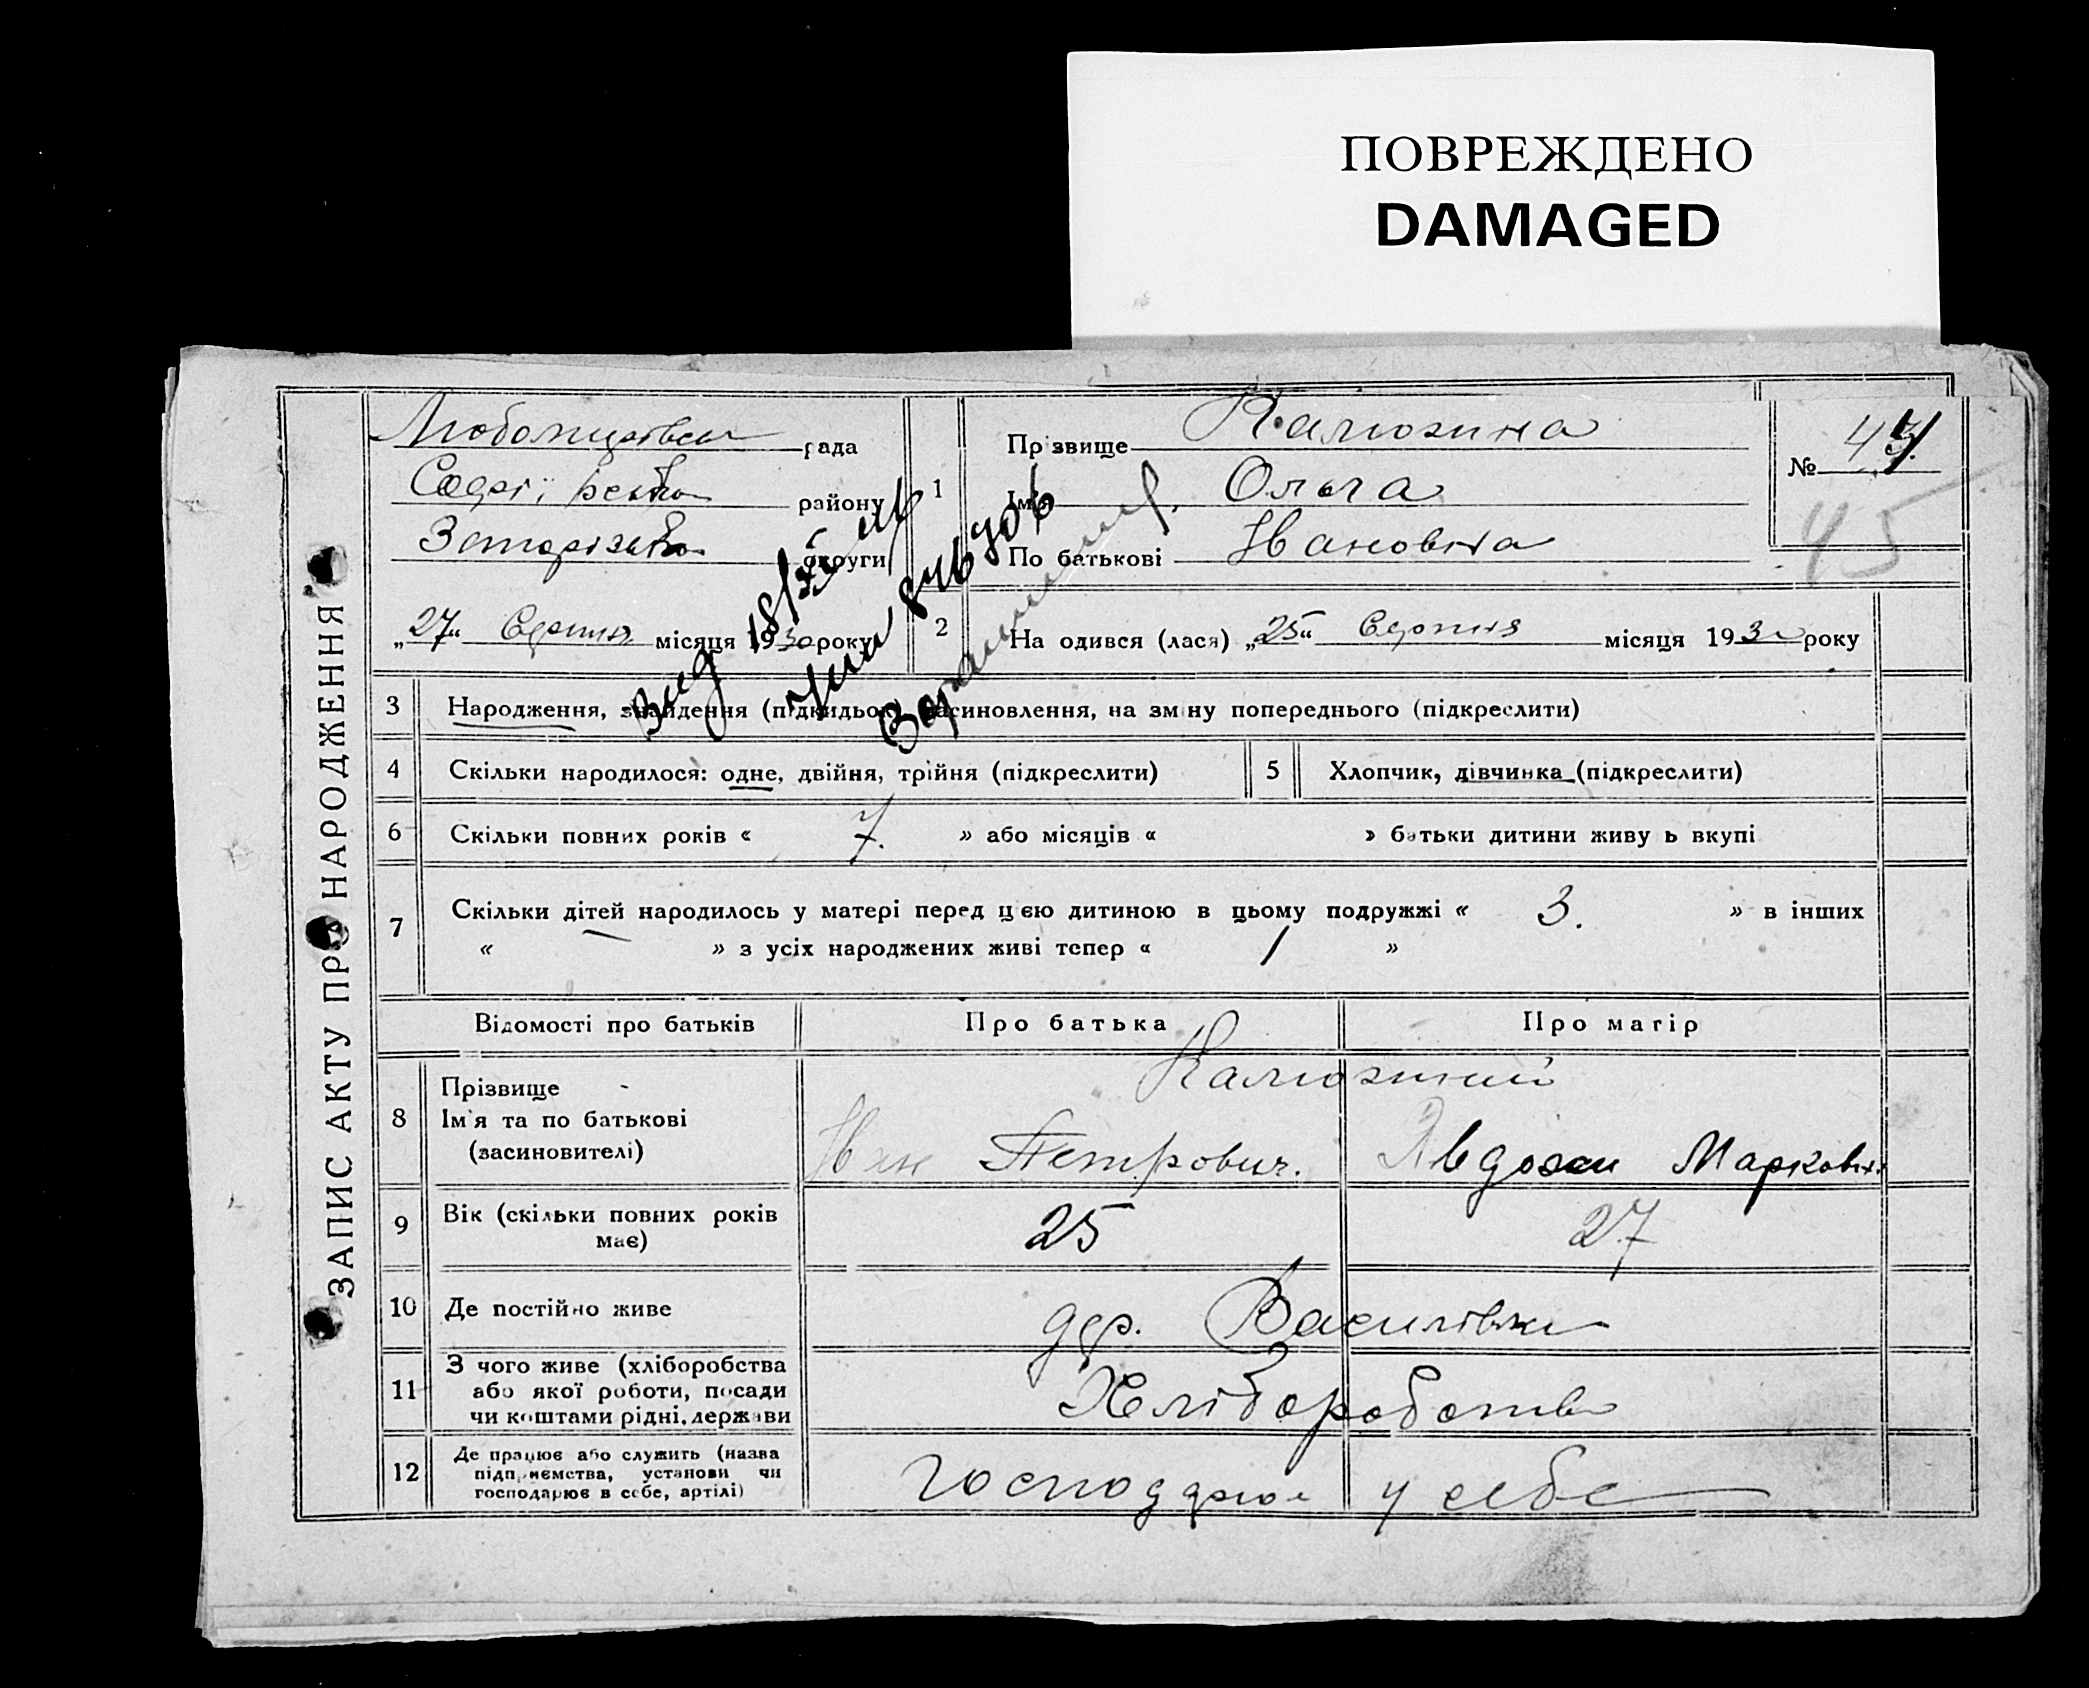 ПОВРЕЖДЕНО
DAMAGED
ЗАПИС АКТУ ПРО НАРОДЖЕННЯ
рада
району
округи
„27“ Серпня місяця 1930 року
1
Прізвище Калюжна
Ім'я Ольга
По батькові Івановна
№ 47
45
2
На одився (лася) „25“ Серпня місяця 1930 року
3 Народження, знайдення (підкидьок), засиновлення, на зміну попереднього (підкреслити)
4 Скільки народилося: одне, двійня, трійня (підкреслити)
5 Хлопчик, дівчинка (підкреслити)
6 Скільки повних років « 7. » або місяців « » батьки дитини живу ь вкупі
7 Скільки дітей народилось у матері перед цією дитиною в цьому подружжі « 3. » в інших
« — » з усіх народжених живі тепер « 1 »
Відомості про батьків Про батька Про матір
8 Прізвище
Ім'я та по батькові
(засиновителі)
Калюжний
Іван Петрович. Явдоха Марковна
9 Вік (скільки повних років
має)
25 27
10 Де постійно живе
дер. Василівка
11 З чого живе (хліборобства
або якої роботи, посади
чи коштами рідні, держави
Хліборобство
12 Де працює або служить (назва
підприємства, установи чи
господарює в себе, артілі)
у себе